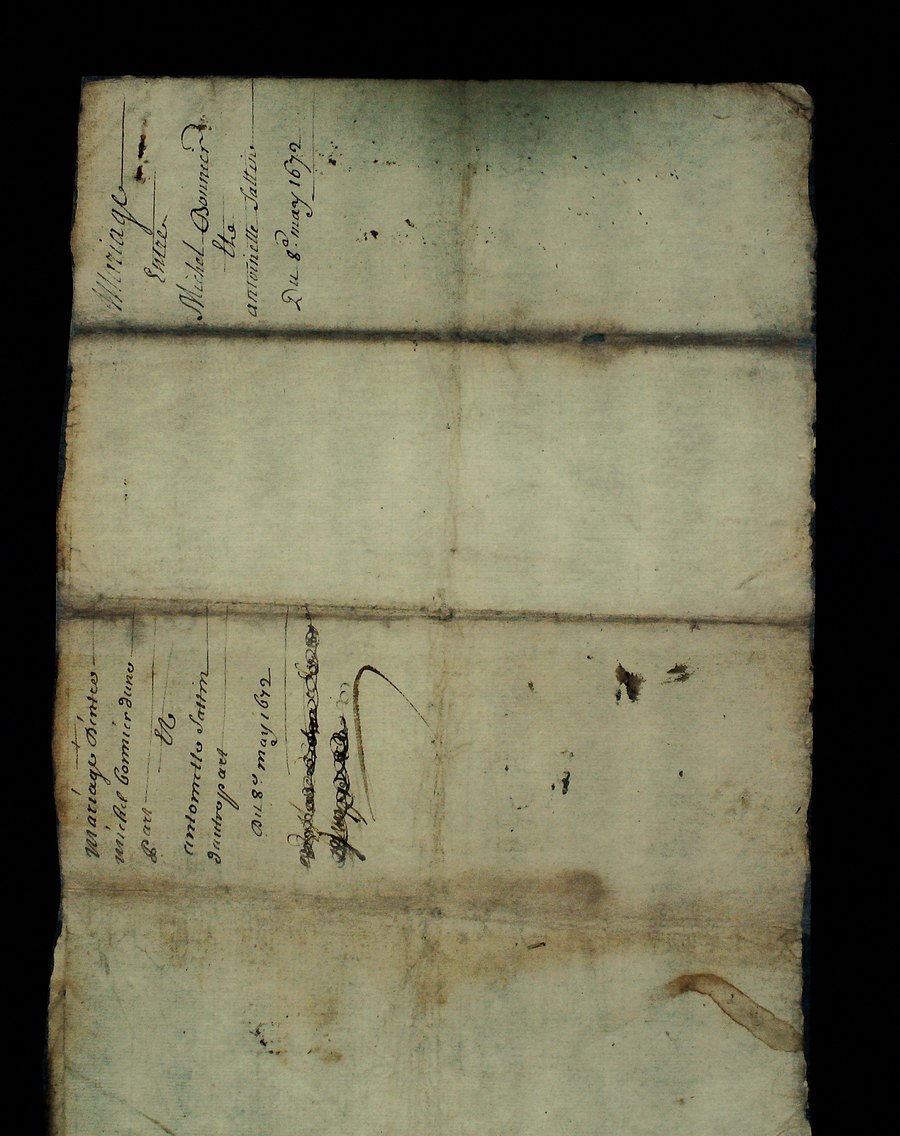 Mariage
Entre
Michel Bonnier
Et
antoinette Sallin
Du 8e may 1672
Mariage Dentre
michel bonnier dune
part
Et
antoinette Sallin
dautre part
Du 8e may 1672